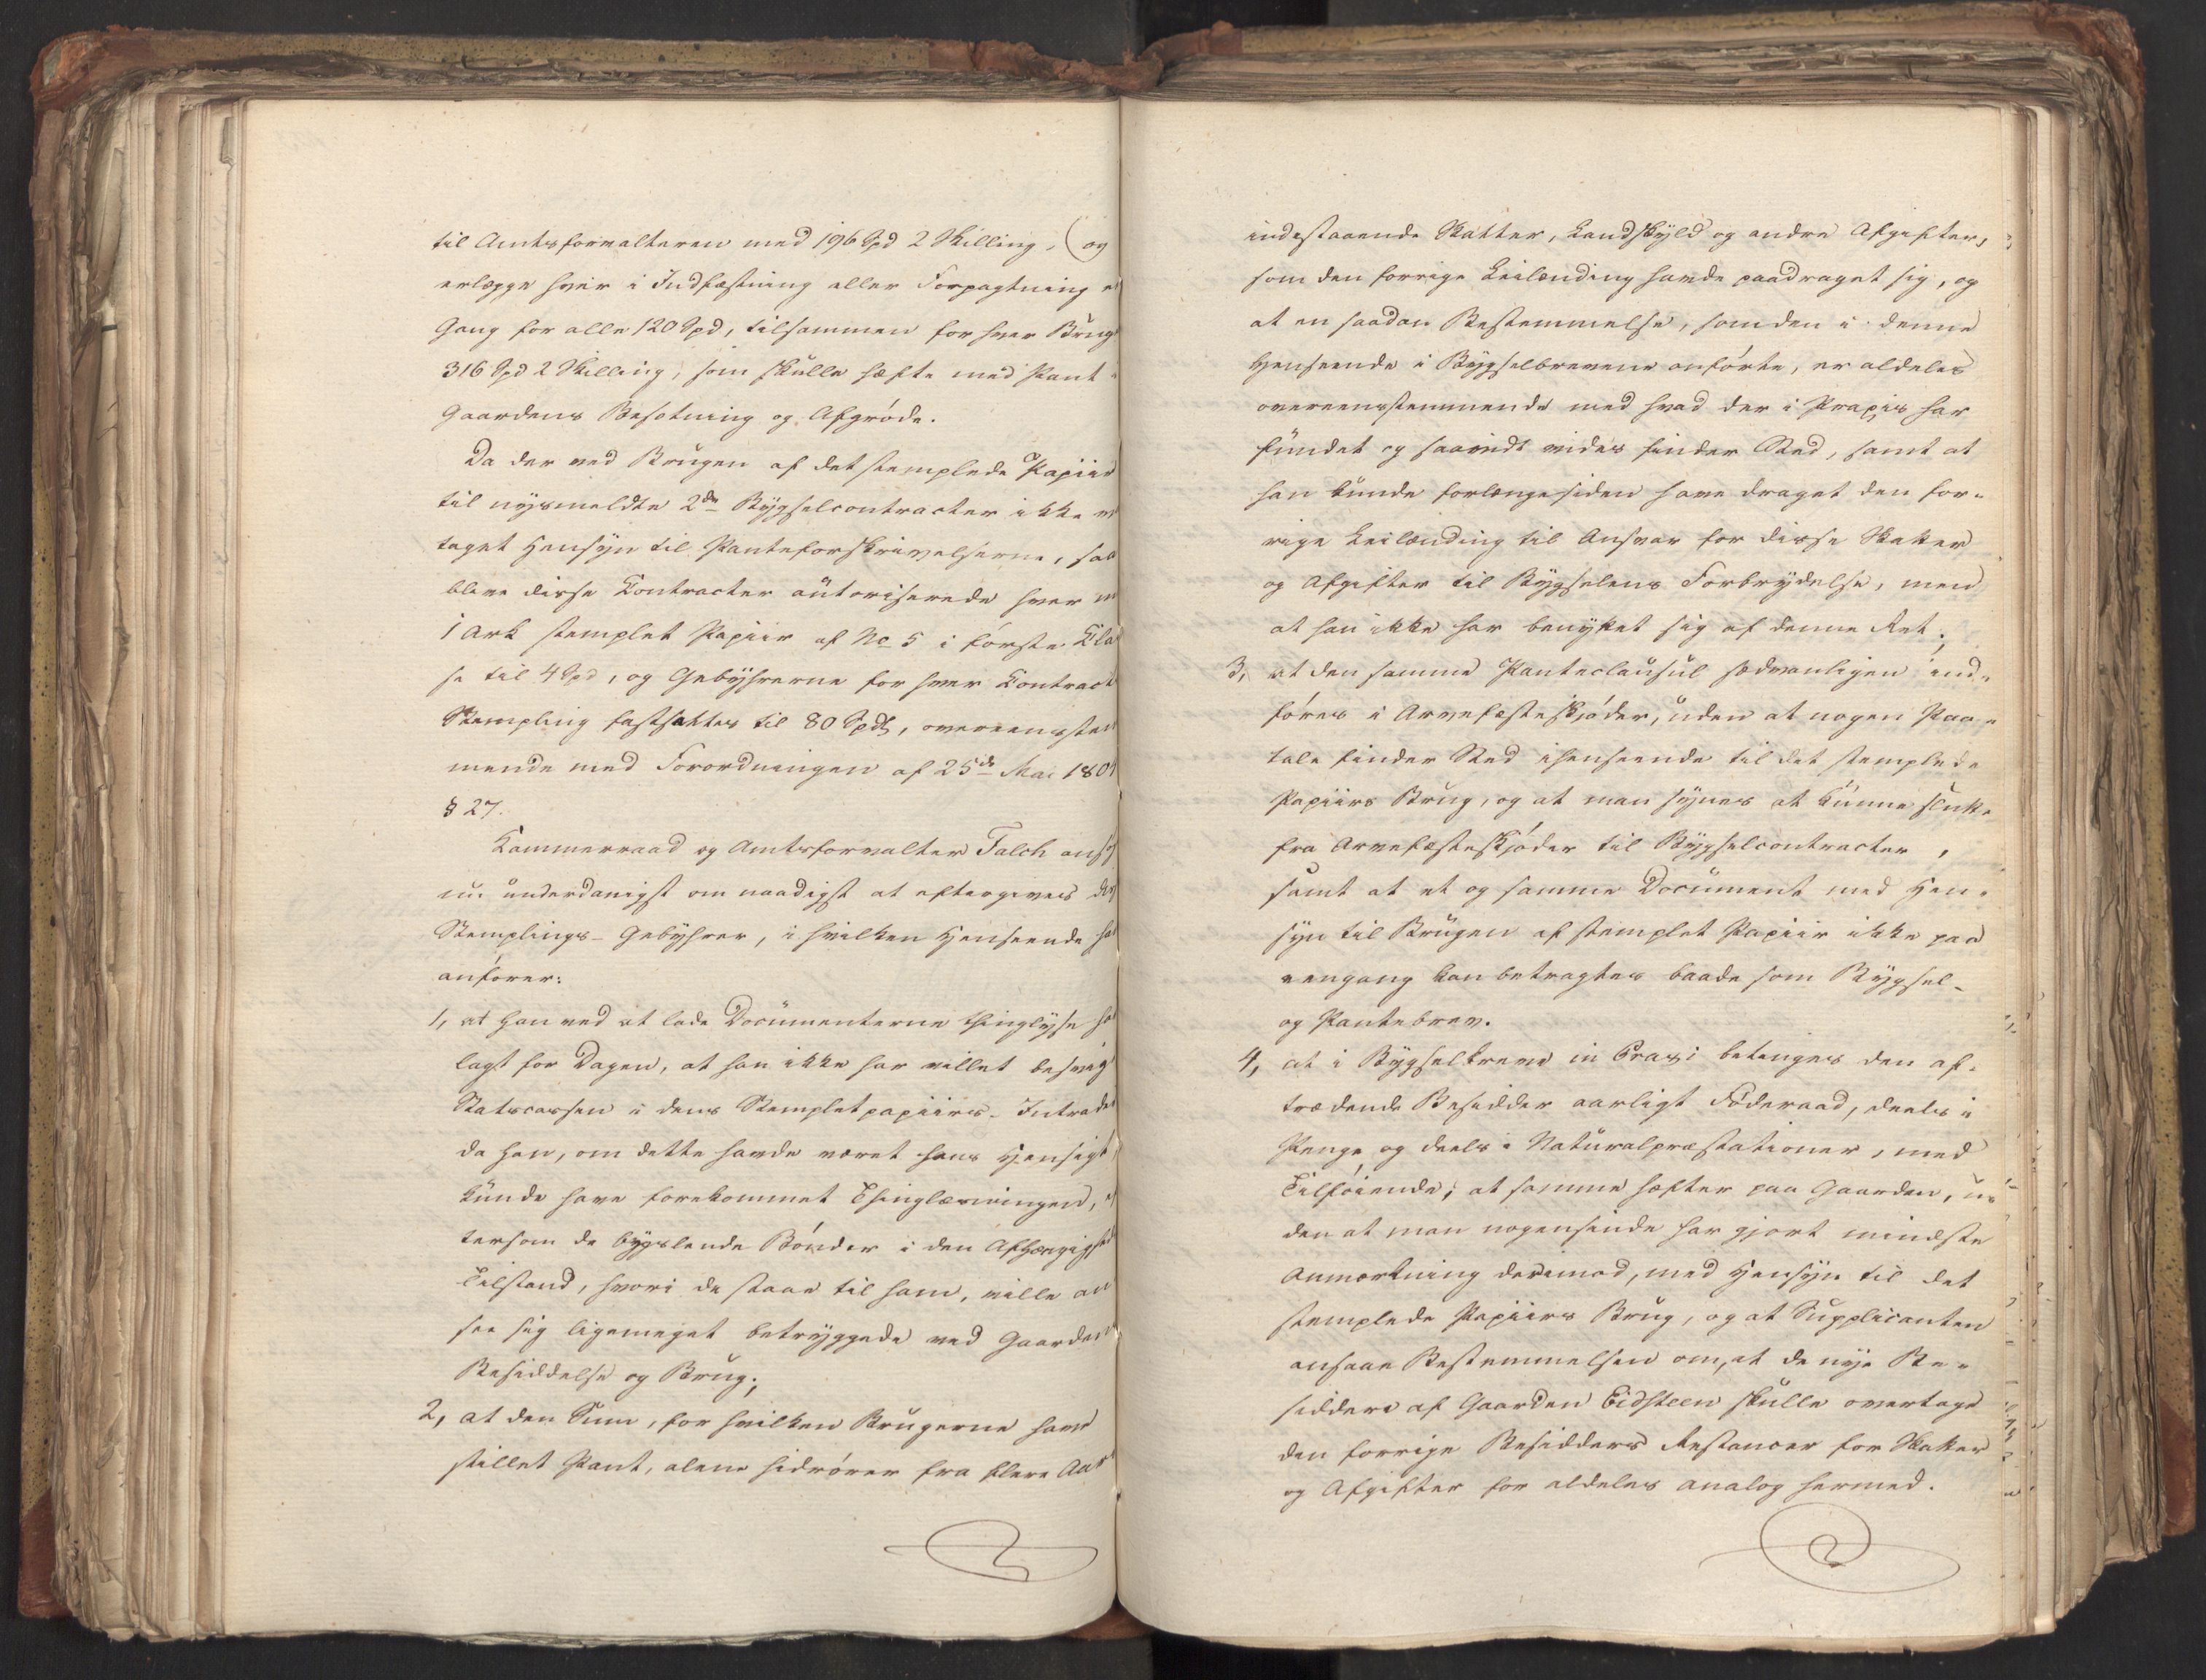 til Amtsforvalteren med 196 Spd 2 Skilling, (og
erlægge hver i Indfæstning eller Forpagtning e
Gang for alle 120 Spd, tilsammen for hver Brug
316 Spd 2 Skilling, som skulle hefte med Pant
Gaardens Besetning og Afgröde.
Da der ved Brugen af det stemplede Papiir
til nysmeldte 2de Bygselcontracter ikke er
taget Hensyn til Panteforskrivelserne, saa
bleve disse Contracter autoriserede hver
1 Ark stemplet Papiir af No 5 i förste Cla
se til 4 Spd, og Gebyhrerne for hver Contract
Stempling fastsattes til 80 Spd, overeensstem
mende med Forordningen af 25de Mai 1804
§ 27.
Kammerraad og Amtsforvalter Falch ansö
nu underdanigst om naadigst at eftergives
Stemplings-Gebyhrer, i hvilken Henseende ha
anförer:
1, at han ved at lade Documenterne thinglyse ha
lagt for Dagen, at han ikke har villet besvig
Statscassen i dens Stempletpapiirs-Intrader
da han, om dette havde været hans Hensigt,
kunde have forekommet Thinglæsningen, ef
tersom de bygslende Bönder i den Afhængighed
Tilstand, hvori de staae til ham, ville an
see sig ligemeget betryggede ved Gaardens
Besiddelse og Brug;
2, at den Sum, for hvilken Brugerne have
stillet Pant, alene hidrörer fra flere Aars
indestaaende Skatter, Landskyld og andre Afgifter,
som den forrige Leilænding havde paadraget sig, og
at en saadan Bestemmelse, som den i denne
Henseende i Bygselbrevene anförte, er aldeles
overeensstemmende med hvad der i Praxis har
fundet og saavidt vides finder Sted, samt at
han kunde forlængesiden have draget den for-
rige Leilænding til Ansvar for disse Skatter
og Afgifter til Bygselens Forbrydelse, men
at han ikke har benyttet sig af denne Ret;
3, at den samme Panteclausul sædvanligen ind-
föres i Arvefæsteskjöder, uden at nogen Paa-
tale finder Sted ihenseende til det stemplede
Papiirs Brug, og at man synes at kunne slutte
fra Arvefæsteskjöder til Bygselcontracter,
samt at et og samme Document med Hen-
syn til Brugen af stemplet Papiir ikke paa
eengang kan betragtes baade som Bygsel-
og Pantebrev.
4, at i Bygselbreve in Praxi betinges den af-
trædende Besidder aarligt Föderaad, deels i
Penge og deels i Naturalpræstationer, med
Tilföiende, at samme hefter paa Gaarden, u-
den at man nogensinde har gjort mindste
Anmærkning derimod, med Hensyn til det
stemplede Papiirs Brug, og at Supplicanten
ansaae Bestemmelsen om, at de nye Be-
siddere af Gaarden Eidsteen skulle overtage
den forrige Besidders Restancer for Skatter
og Afgifter for aldeles analog hermed.